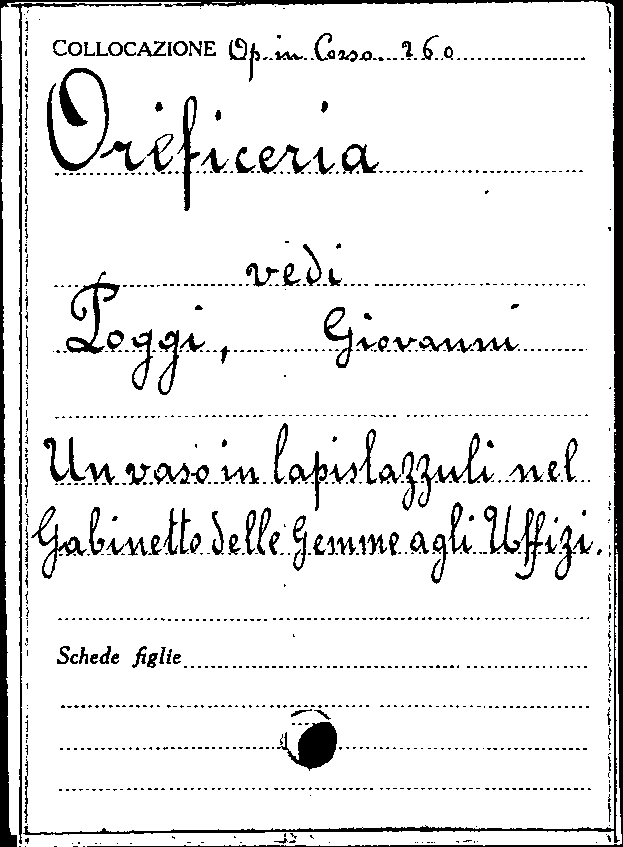 COLLOCAZIONE Op. in Corso. 260
Oreficeria
vedi
Poggi, Giovanni
Un vaso in lapislazzuli nel
Gabinetto delle Gemme agli Uffizi.
Schede figlie